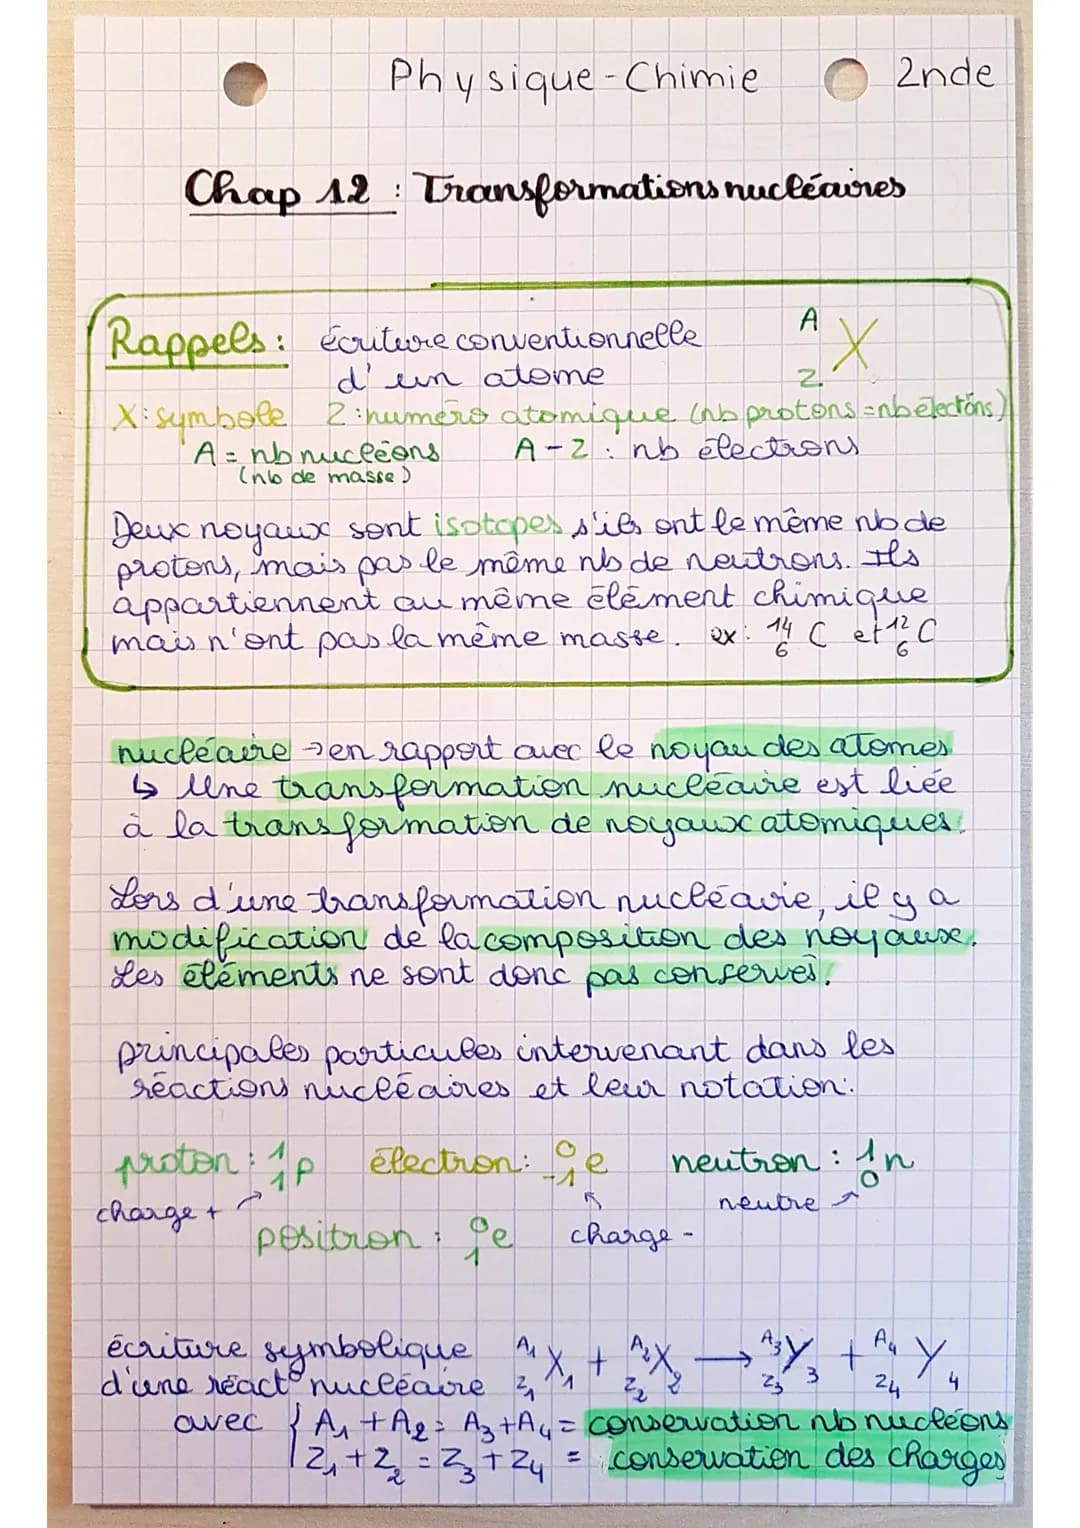 Physique-Chimie 2nde
Chap 12 : Transformations nucléaires
Rappels : écriture conventionnelle A X
d'un atome Z
X: symbole Z : numéro atomique (nb protons = nb électrons)
A = nb nucléons A - Z : nb électrons
(nb de masse)
Deux noyaux sont isotopes s'ils ont le même nb de
protons, mais pas le même nb de neutrons. Ils
appartiennent au même élément chimique
mais n'ont pas la même masse. ex: ¹⁴₆C et ¹²₆C
nucléaire → en rapport avec le noyau des atomes
↳ Une transformation nucléaire est liée
à la transformation de noyaux atomiques.
Lors d'une transformation nucléavie, il y a
modification de la composition des noyaux.
Les éléments ne sont donc pas conservés!
principales particules intervenant dans les
réactions nucléaires et leur notation:
proton : ¹₁p électron : ⁰₋₁e neutron : ¹₀n
charge + neutre
positron : ⁰₁e charge -
écriture symbolique ᴬ¹X₁ + ᴬ²X₂ → ᴬ³Y₃ + ᴬ⁴Y₄
d'une réact° nucléaire Z₁ Z₂ Z₃ Z₄
avec { A₁ + A₂ = A₃ + A₄ = conservation nb nucléons
Z₁ + Z₂ = Z₃ + Z₄ = conservation des charges